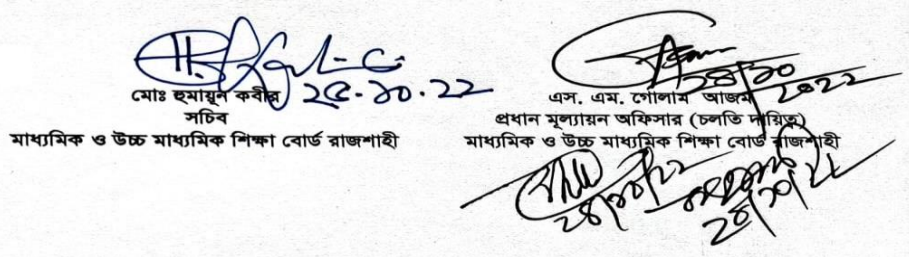 মোঃ হুমায়ুন কবীর ২৫.১০.২২
সচিব
মাধ্যমিক ও উচ্চ মাধ্যমিক শিক্ষা বোর্ড রাজশাহী
২৪/১০/২০২২
এস. এম. গোলাম আজম
প্রধান মূল্যায়ন অফিসার (চলতি দায়িত্ব)
মাধ্যমিক ও উচ্চ মাধ্যমিক শিক্ষা বোর্ড রাজশাহী
২৪/১০/২২
২৪/১০/২২